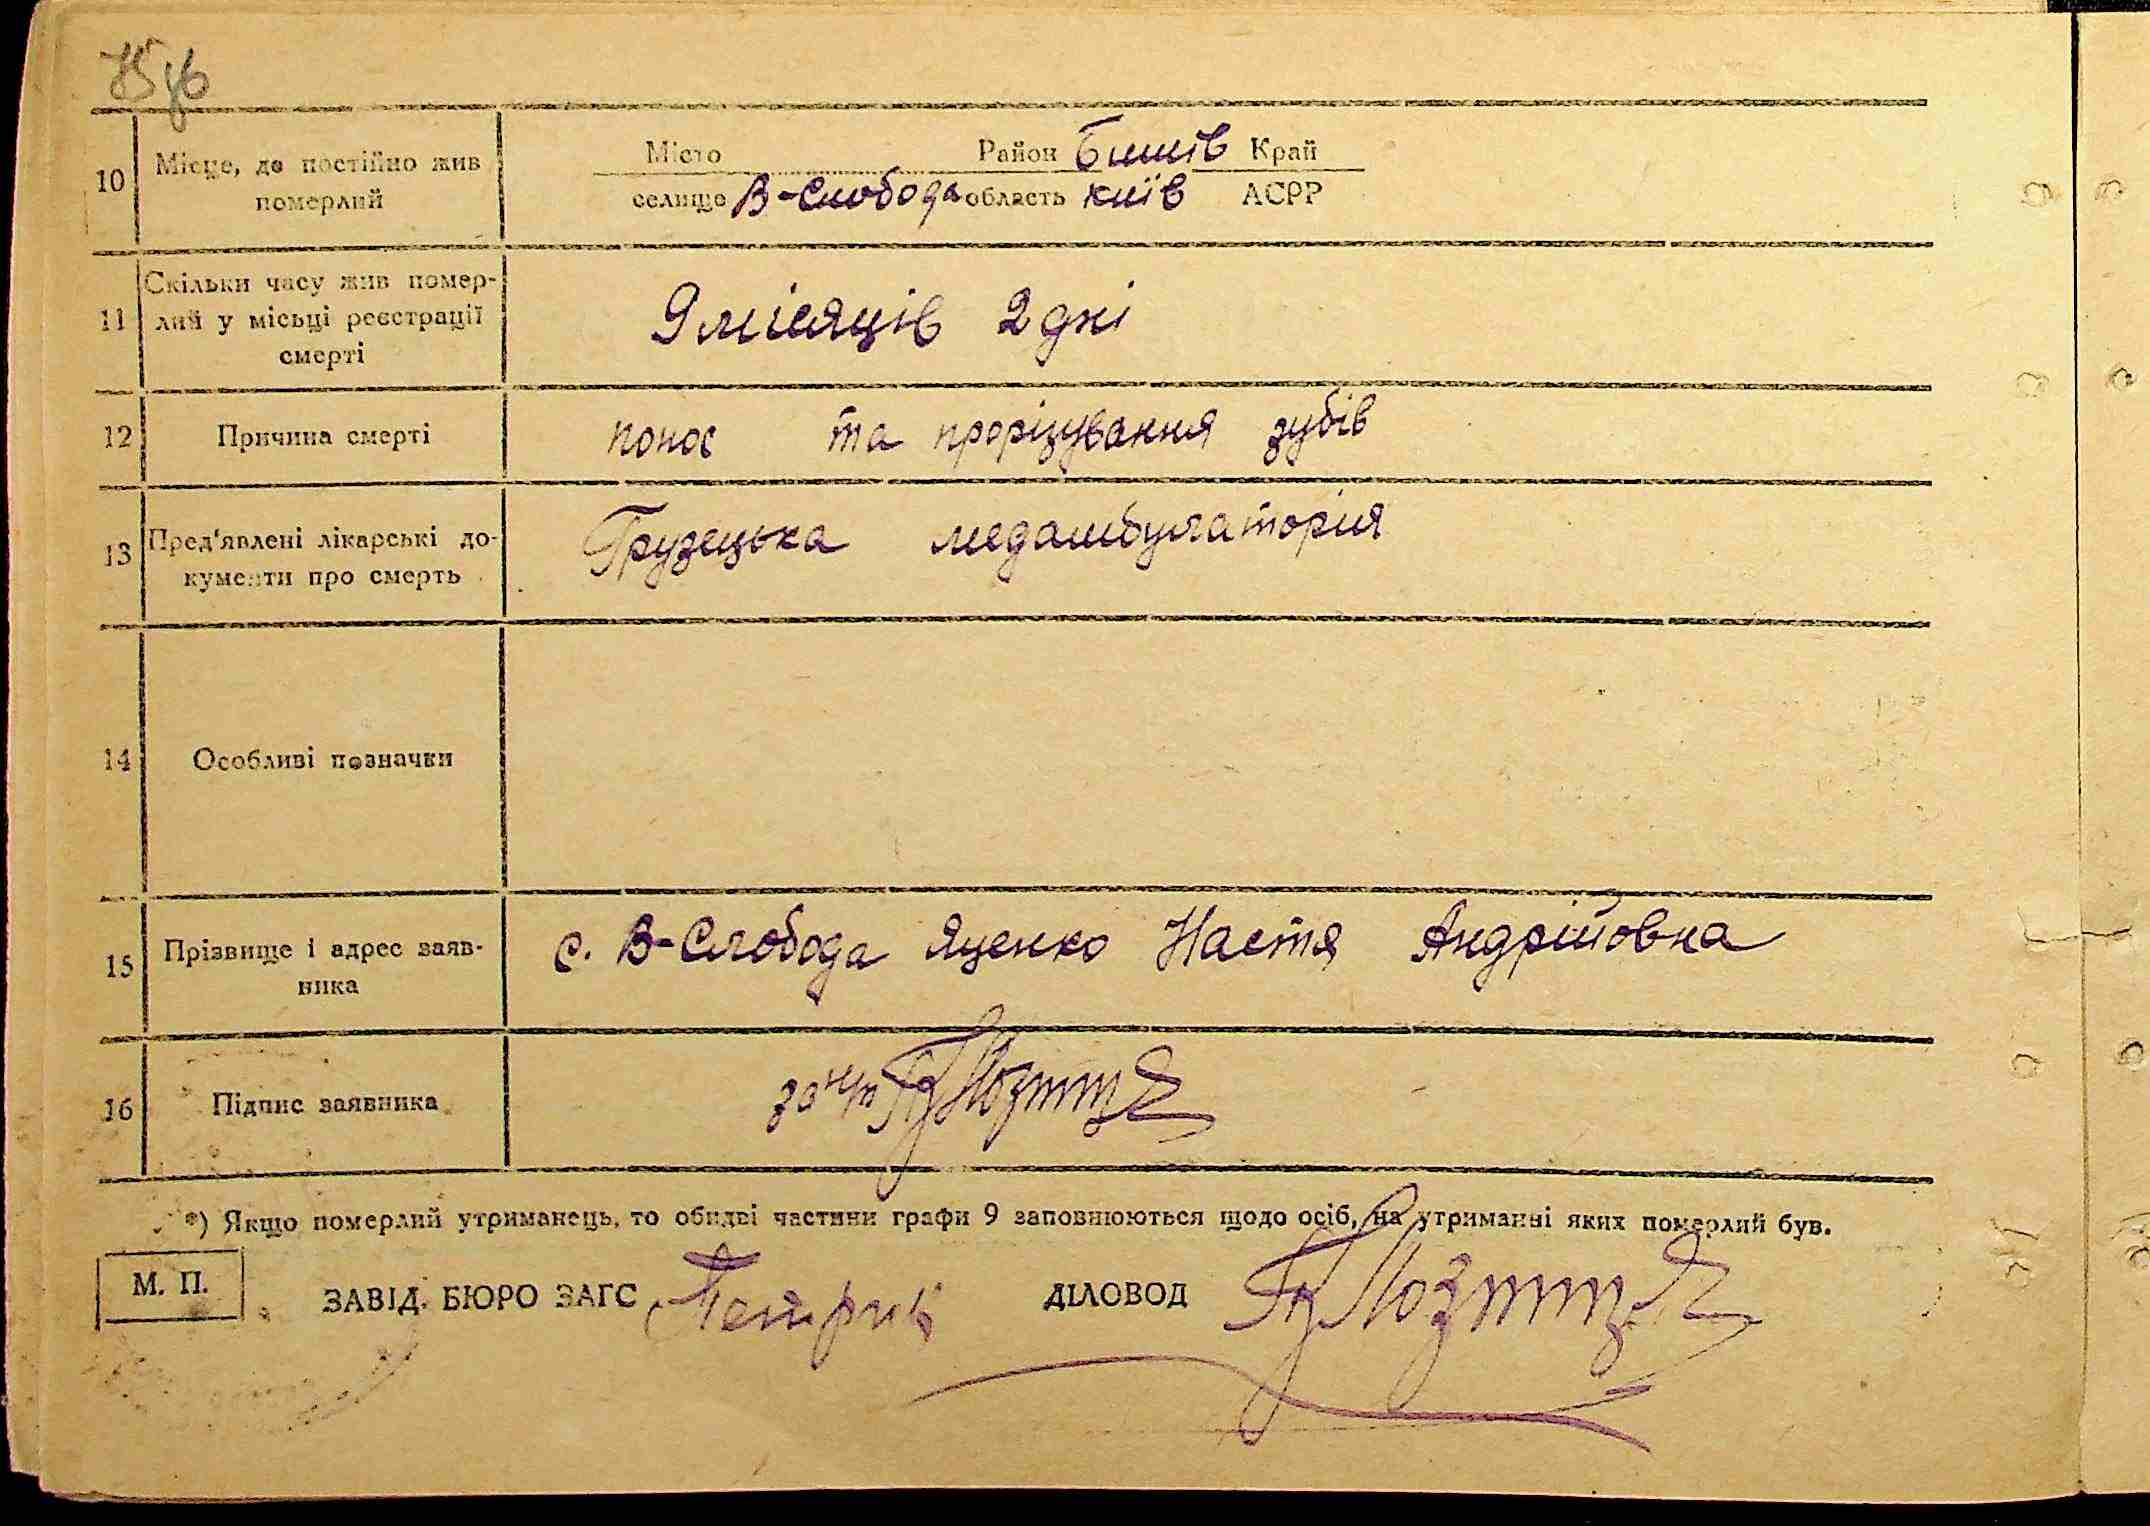 10 Місце, де постійно жив
померлий
Місто Район Бишів Край
селище В-Слобода область Київ АСРР
11 Скільки часу жив помер-
лий у місьці реєстрації
смерті
9 місяців 2 дні
12 Причина смерті
понос та прорізування зубів
13 Пред'явлені лікарські до-
кументи про смерть
Грузецька медамбулаторія
14 Особливі позначки
15 Прізвище і адрес заяв-
ника
с. В-Слобода Яценко Настя Андрійовна
16 Підпис заявника
*) Якщо померлий утриманець, то обидві частини графи 9 заповнюються щодо осіб, на утриманні яких померлий був.
М. П.
ЗАВІД. БЮРО ЗАГС Петрик ДІЛОВОД